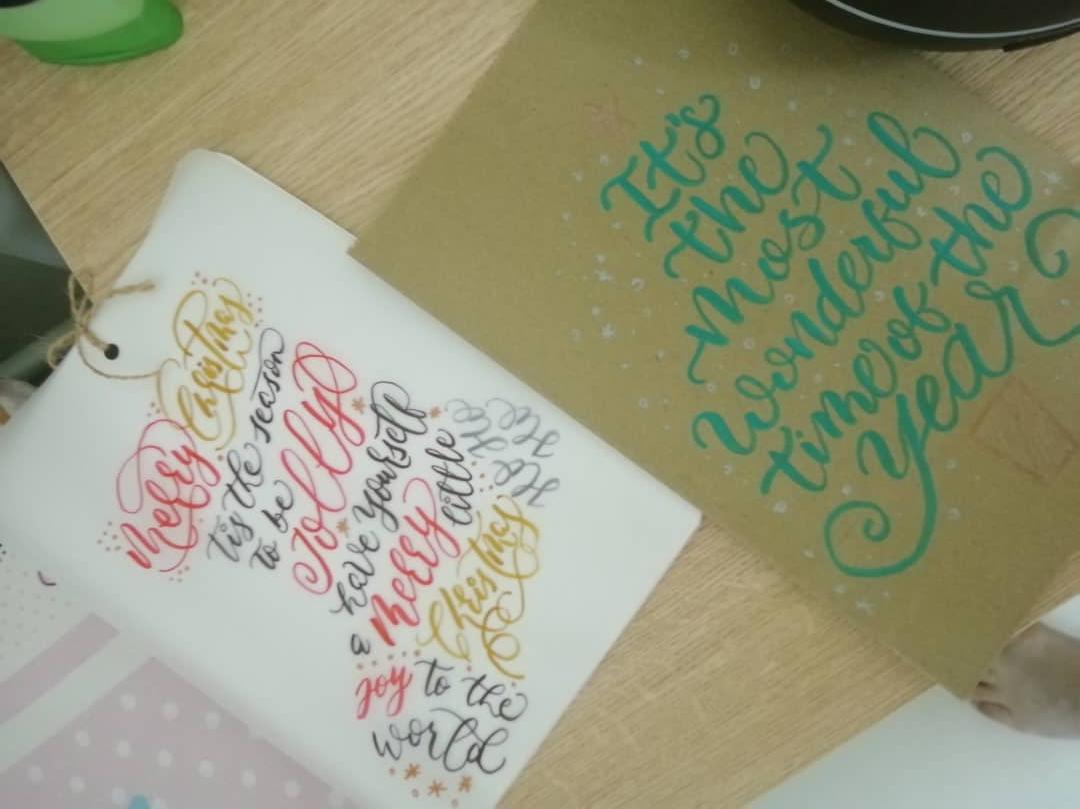 Merry Christmas
tis the season
to be
Jolly
have yourself
a Merry little
Christmas
Ho Ho
Joy to the
world
It's
the
most
wonderful
time of the
year